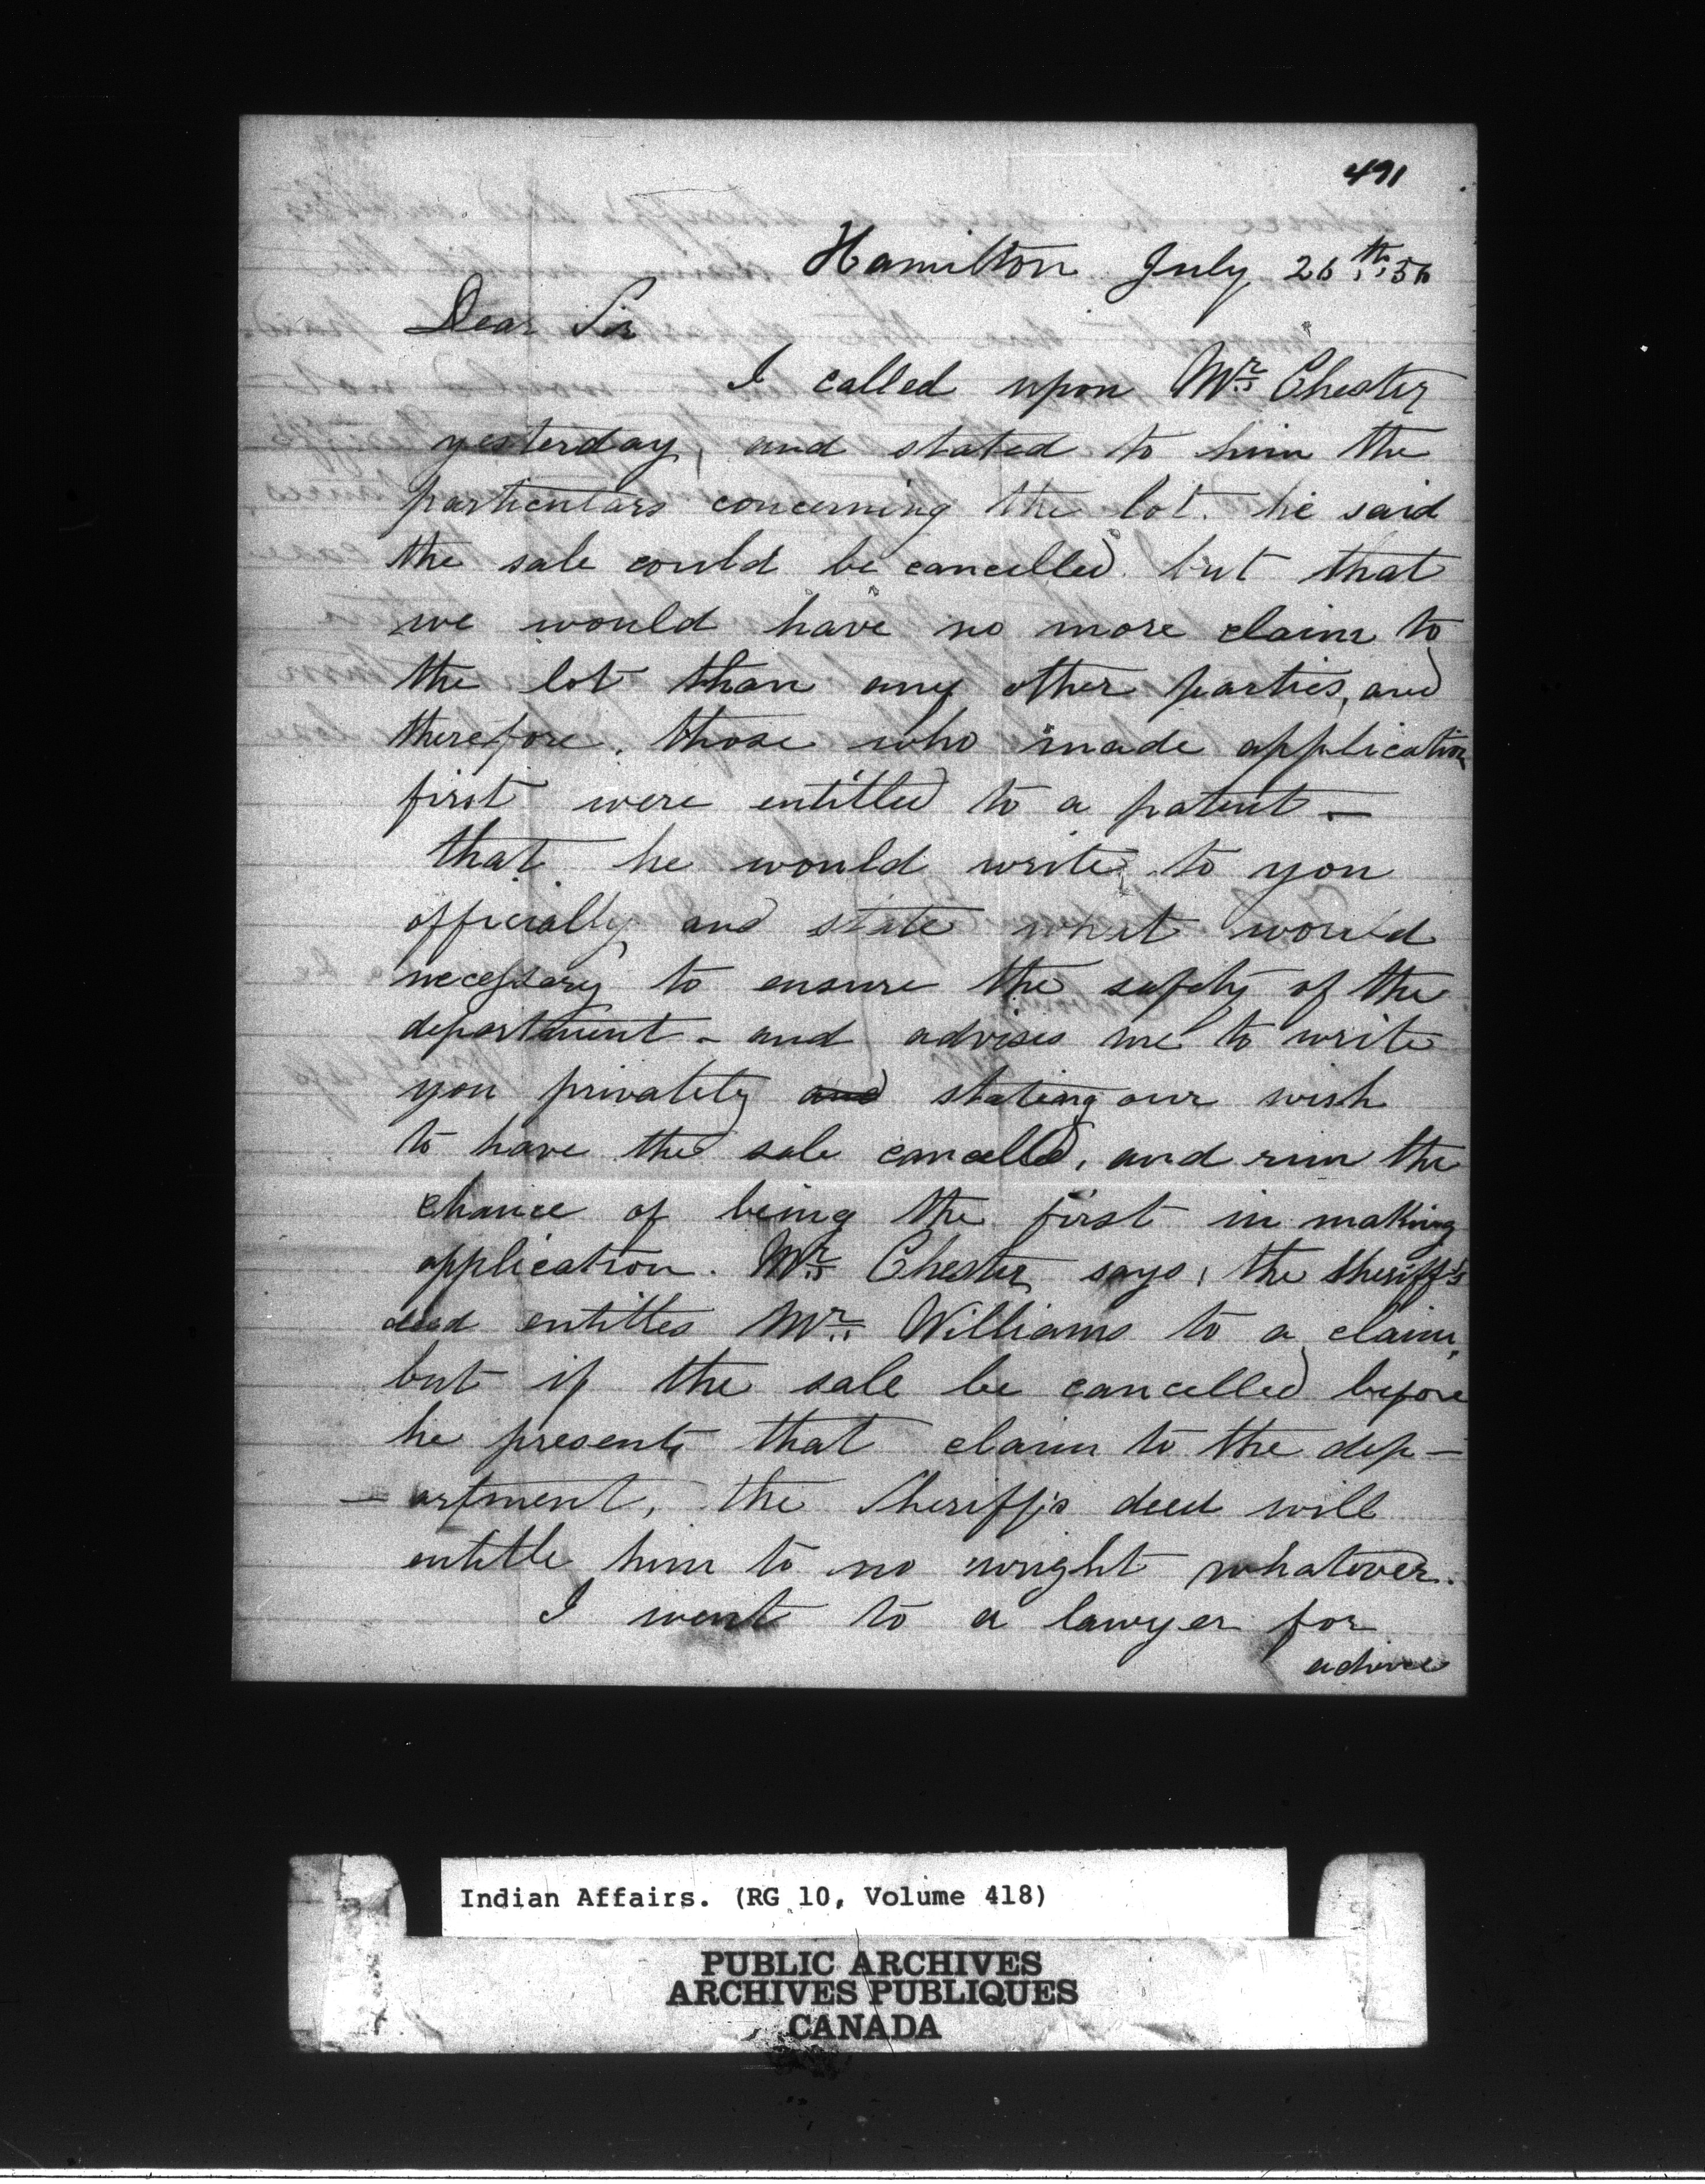 491
Hamilton July 26th 56
Dear Sir
I called upon Mr Chester
yesterday, and stated to him the
particulars concerning the lot. he said
the sale could be cancelled. but that
we would have no more claim to
the lot than any other parties, and
therefore. those who made application
first were entitled to a patent. —
that he would write to you
officially and state what would
necessary to ensure the safety of the
department - and advises me to write
you privately and stating our wish
to have the sale cancelled, and run the
chance of being the first in making
application. Mr Chester says, the sheriff's
deed entitles Mr Williams to a claim,
but if the sale be cancelled before
he presents that claim to the dep-
- artment, the Sheriff's deed will
entitle him to no wright whatever.
I went to a lawyer for
advice
Indian Affairs. (RG 10, Volume 418)
PUBLIC ARCHIVES
ARCHIVES PUBLIQUES
CANADA